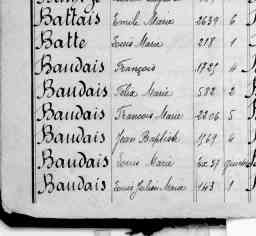 Battais Emile Marie 2639 6
Batte Louis Marie 218 1
Baudais François 1725 4
Baudais Felix Marie 582 2
Baudais Francois Marie 2206 5
Baudais Jean Baptiste 1769 4
Baudais Louis Marie Ex 57
Baudais Louis Julien Marie 143 1